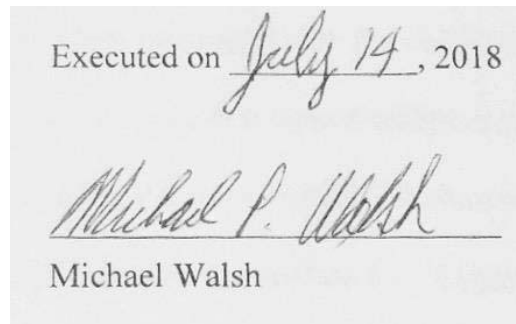 Executed on July 14, 2018
Michael P. Walsh
Michael Walsh